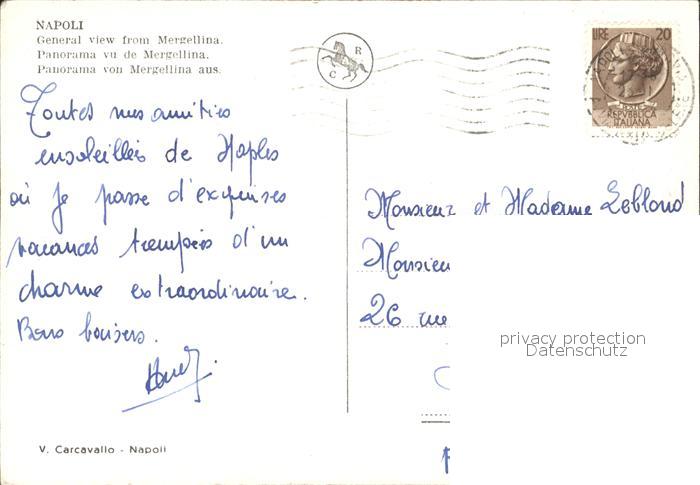 NAPOLI
General view from Mergellina.
Panorama vu de Mergellina.
Panorama von Mergellina aus.
C R
LIRE 20
REPVBBLICA
ITALIANA
Toutes mes amitiés
ensoleillées de Naples
où je passe d'exquises
vacances trempées d'un
charme extraordinaire.
Bons baisers.
Monsieur et Madame Leblond
Monsieu
26 rue
privacy protection
Datenschutz
V. Carcavallo - Napoli